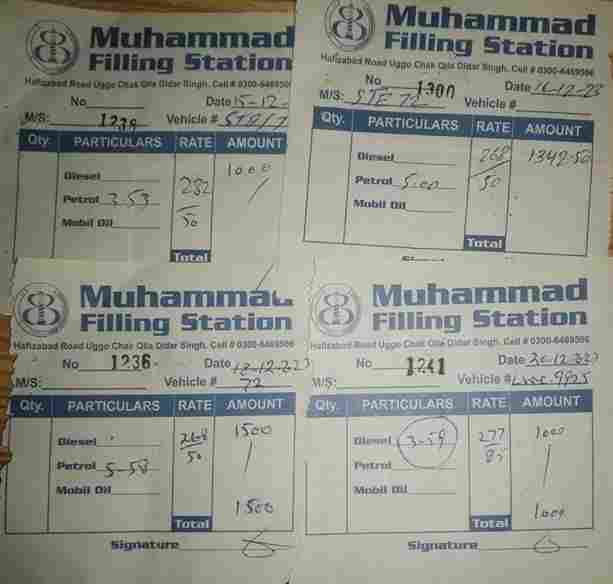 Muhammad
Filling Station
Hafizabad Road Uggo Chak Qila Didar Singh. Cell # 0300-6469506
No Date 15-12-
M/S: 1239 Vehicle #
Qty. PARTICULARS RATE AMOUNT
Diesel 1000
Petrol 3.53 282
Mobil Oil 50
Total
Muhammad
Filling Station
Hafizabad Road Uggo Chak Qila Didar Singh. Cell # 0300-6469506
No 1300 Date 16-12-23
M/S: STE 72 Vehicle #
Qty. PARTICULARS RATE AMOUNT
Diesel 268 1342-50
Petrol 5.00 50
Mobil Oil
Total
Muhammad
Filling Station
Hafizabad Road Uggo Chak Qila Didar Singh. Cell # 0300-6469506
No 1236 Date
M/S: Vehicle # 72
Qty. PARTICULARS RATE AMOUNT
Diesel 268 1500
Petrol 5-58 50
Mobil Oil
1500
Total
Signature
Muhammad
Filling Station
Hafizabad Road Uggo Chak Qila Didar Singh. Cell # 0300-6469506
No 1241 Date
M/S: Vehicle #
Qty. PARTICULARS RATE AMOUNT
Diesel 3-59 277 1000
Petrol 85
Mobil Oil
1000
Total
Signature